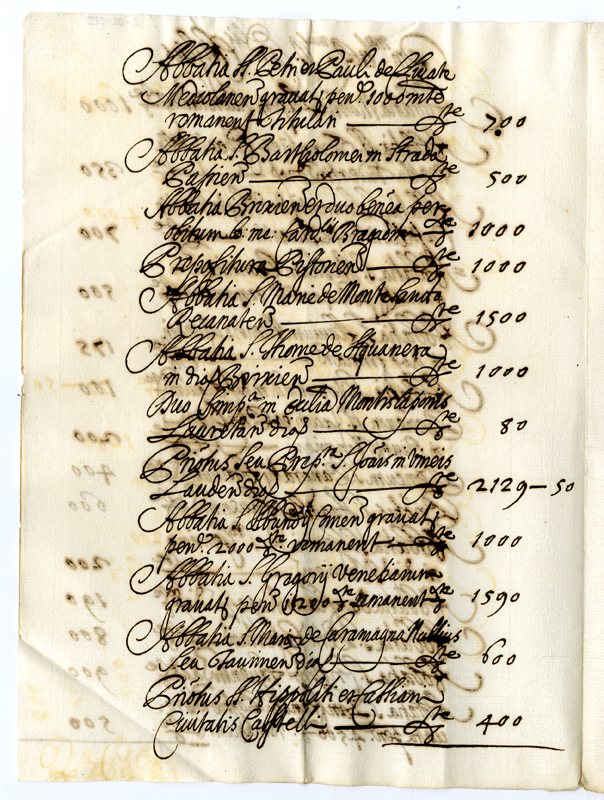 Abbatia SS. Petri et Pauli de
Mediolanen gravat pen. 1000 mte
romanent 700
Abbatia S. Bartholomei in Strada
Papien 500
Abbatia Brixien et duo benea per
obitum bo: me: Card. 1000
Prepositura Pistorien 1000
Abbatia S. Marie de Monte Sancto
Recanaten 1500
Abbatia S. Thome de Aquanera
in dio Brixien 1000
Duo Simp.a in Ecclia Montis
Lauretan dios 80
Priotus seu Prep.ra S. Joais in Vineis
Lauden dios 2129-50
Abbatia S. Abundij Comen gravat
pen. 2000 remanent 1000
Abbatia S. Gregorij Venetiarum
gravat pen remanent 1590
Abbatia S. Marie de Caramagna Nullius
seu Taurinen dios 600
Priotus SS. Hippoliti et Cassiani
Civitatis Castelli 400